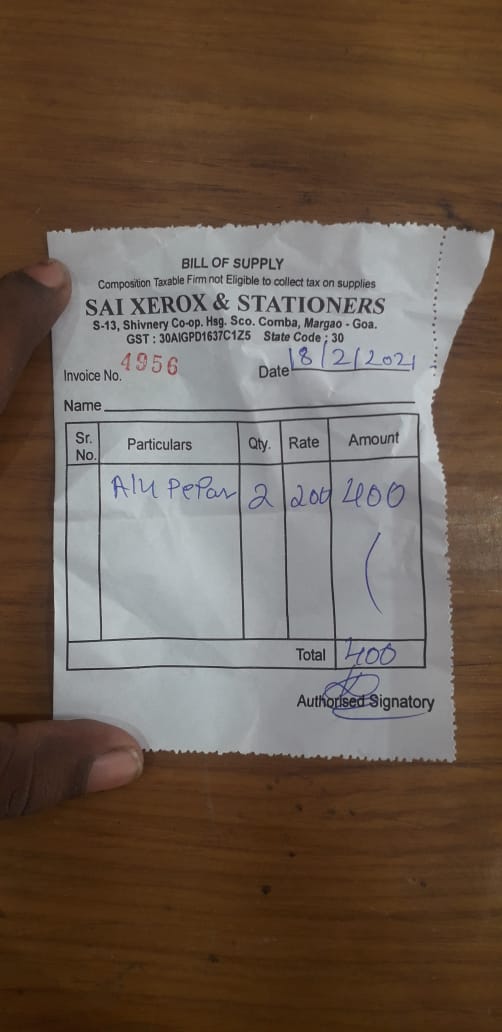 BILL OF SUPPLY
Composition Taxable Firm not Eligible to collect tax on supplies
SAI XEROX & STATIONERS
S-13, Shivnery Co-op. Hsg. Sco. Comba, Margao - Goa.
GST : 30AIGPD1637C1Z5 State Code : 30
Invoice No. 4956 Date 18/2/2021
Name
Sr. No. Particulars Qty. Rate Amount
A/4 Pepar 2 200 400
Total 400
Authorised Signatory